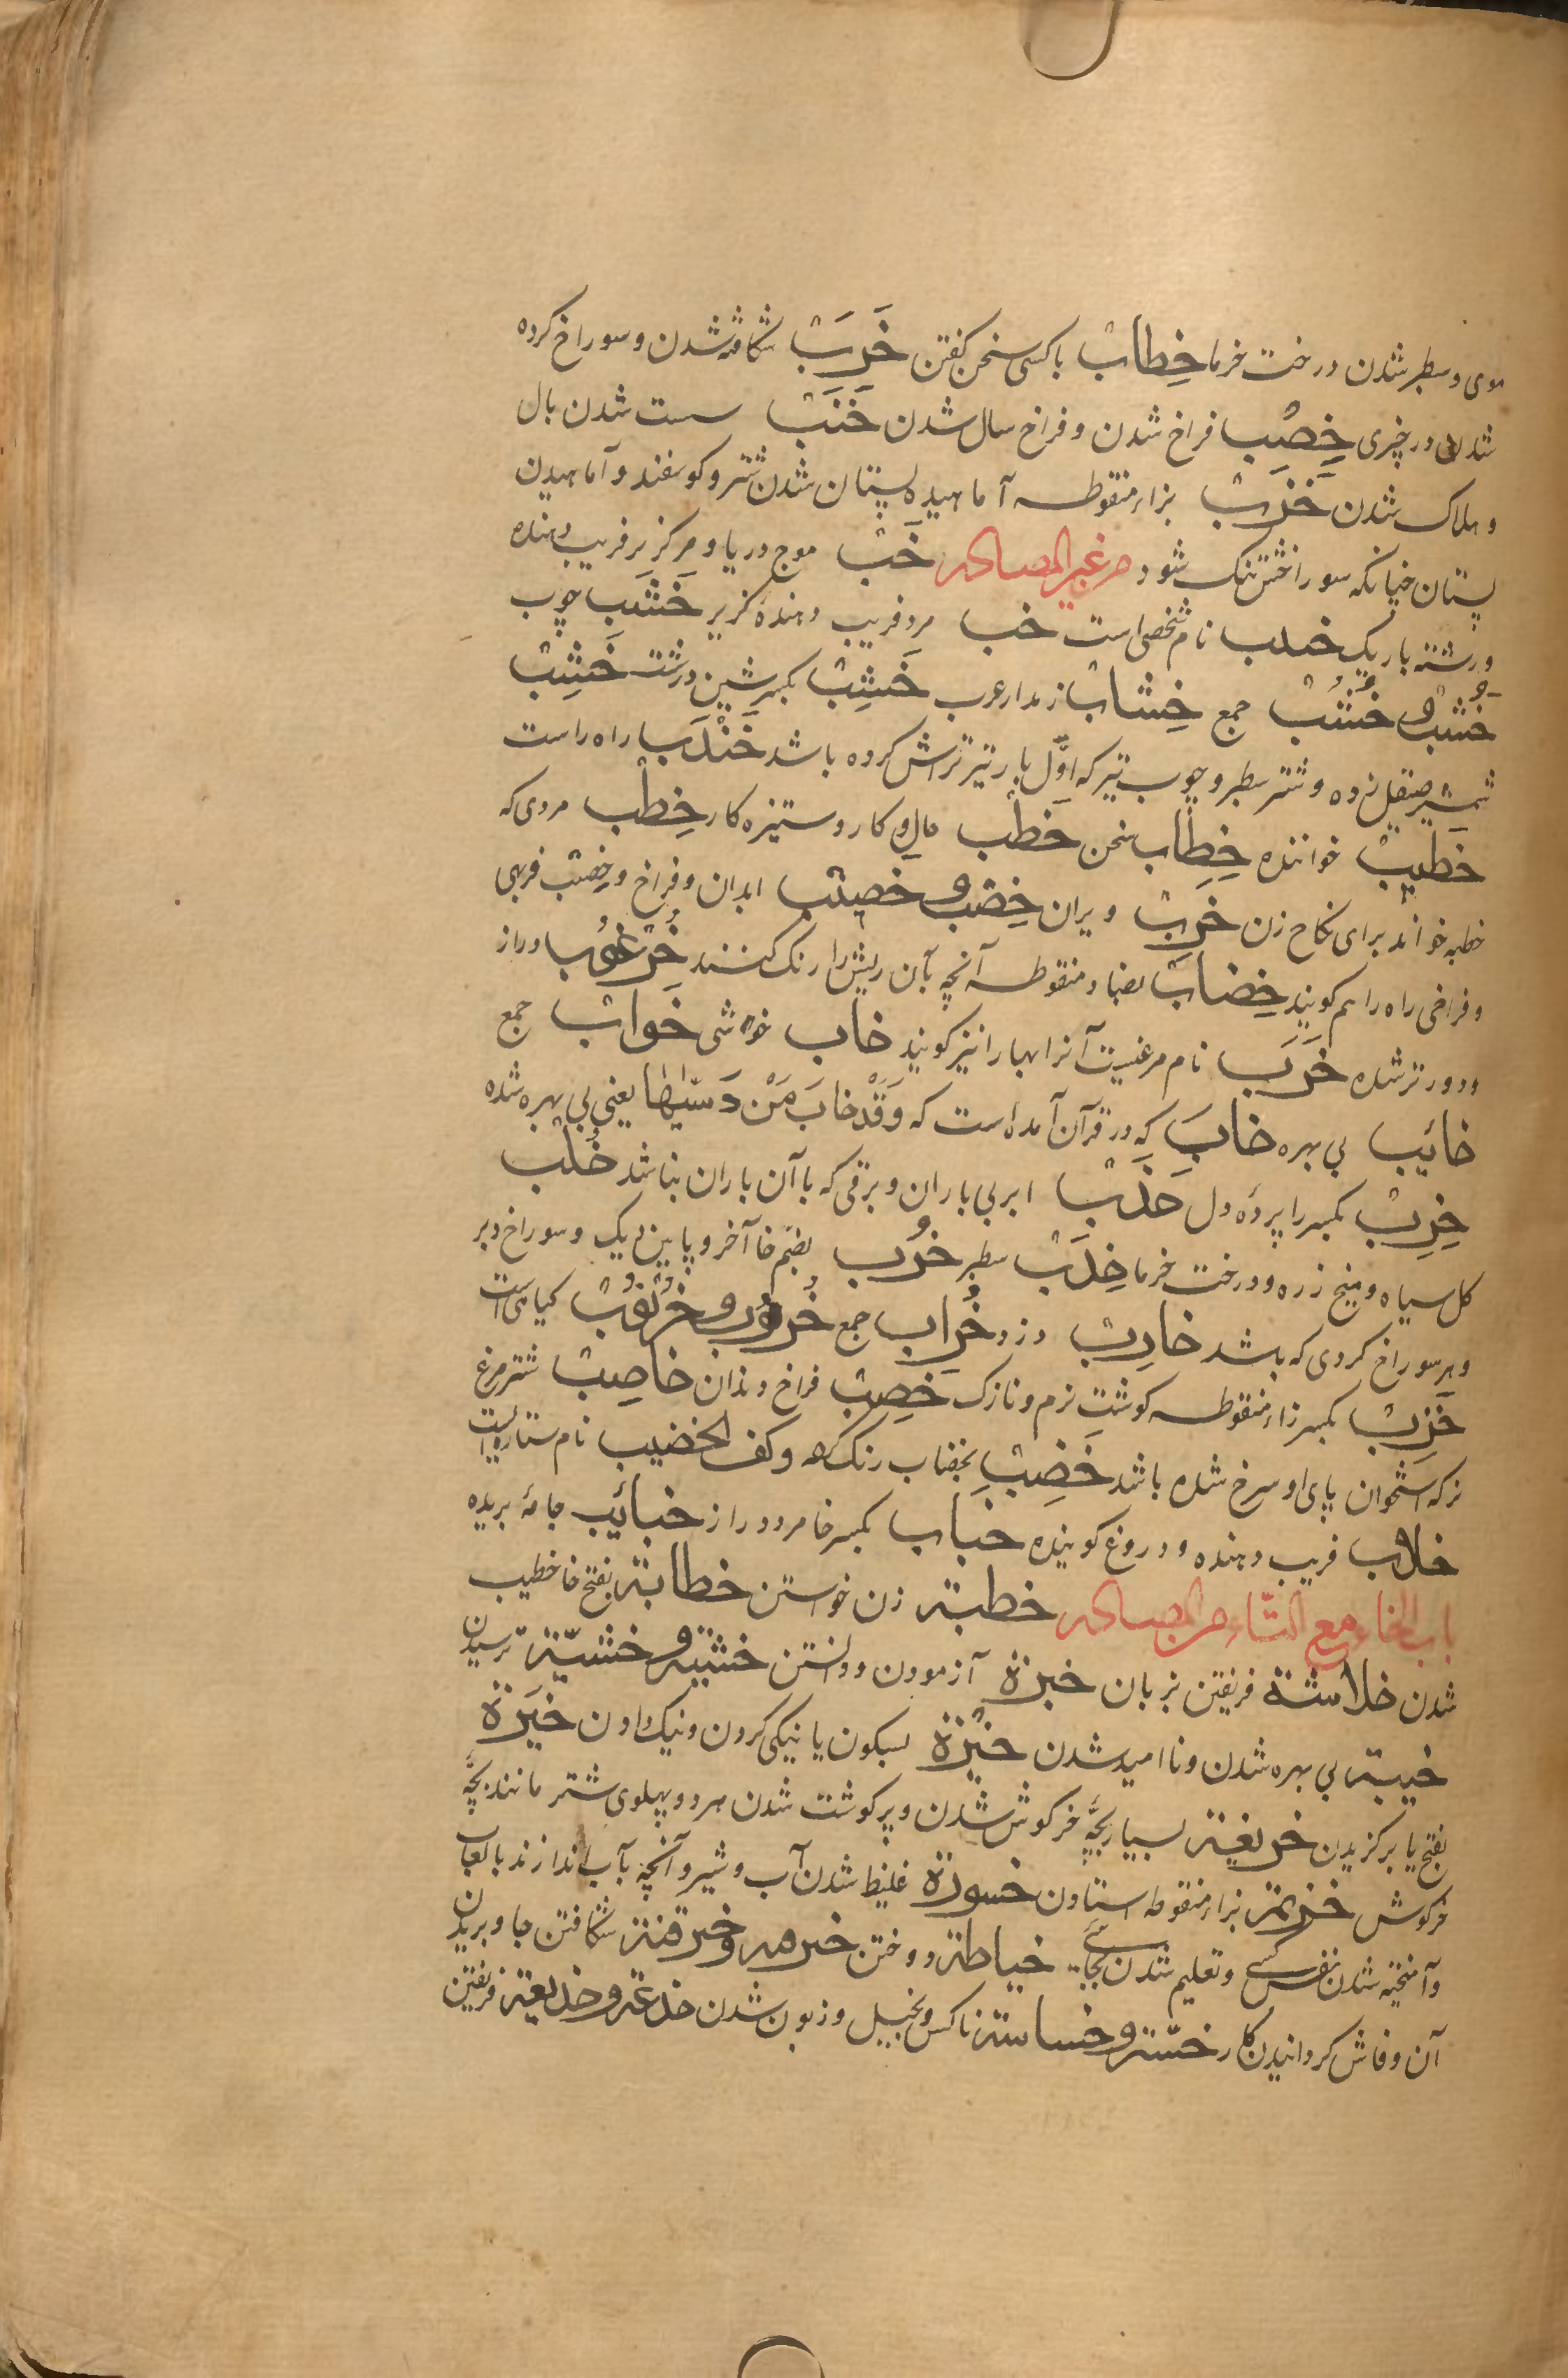 موی و سطبر شدن درخت خرما خِطابٌ با کسی سخن کفتن خَرَبٌ شکافته شدن و سوراخ کرده
شدن در چیزی خِصْب فراخ شدن و فراخ سال شدن خَنَبٌ سست شدن بال
و هلاک شدن خَزَبٌ بزاء منقوطه آماهیده پستان شدن شتر و کوسفند و آماهیدن
پستان چنانکه سوراخش تنک شود من غیر المصادر خَبٌّ موج دریا و مرد کربز فریب دهنده
و رشته باریک خدب نام شخصی است خب مرد فریب دهنده کربز خَشَب چوب
خُشْبٌ و خُشُبٌ جمع خِشاب از مدار عرب خَشِبٌ بکسر شین درشت خَشِبٌ
شمشیر صیقل زده و شتر سطبر و چوب تیر که اوّل بار تیر تراش کرده باشد خَنْدَب راه راست
خطیبٌ خواننده خِطاب سخن خَطْب حال و کار و ستیزه کار خِطْب مردی که
خطبه خواند برای نکاح زن خَرِبٌ ویران خِصْب و خصیب ابدان و فراخ و خِصْب فربهی
و فراخی راه را هم کویند خِضابٌ بضاد منقوطه آنچه بآن ریش را رنک کنند خُرْعُوب دراز
و دورتر شده خَرَب نام مرغیست آنرا هبارا نیز کویند خاب خواشی خَوابٌ جمع
خائیب بی بهره خابَ که در قرآن آمده است که وَقَدْ خابَ مَنْ دَسّیٰها یعنی بی بهره شده
خِرِبٌ بکسر را پرده دل خَدَبٌ ابر بی باران و برقی که با آن باران نباشد خُلْب
کل سیاه و میخ زره و درخت خرما خِدَبٌ سطبر خُرب بضم خا آخر و پایین دیک و سوراخ دبر
و هر سوراخ کردی که باشد خارِبٌ دزد خُراب جمع خُروب و خُرْنوُبٌ کیاهی است
خَزِبٌ بکسر زاء منقوطه کوشت نرم و نازک خَصِبٌ فراخ و نذان خاصِبٌ شترمرغ
نر که استخوان پای او سرخ شده باشد خَضِبٌ بخضاب رنک کرده و کف الخضیب نام ستاره ایست
خلاب فریب دهنده و دروغ کوینده خباب بکسر خا مرد دراز خبائب جامهٔ بریده
باب الخاء مع التّاء من المصادر خطبة زن خواستن خطابة بفتح خا خطیب
شدن خلابتة فریفتن بزبان خبرة آزمودن و دانستن خشیة و خشیّة ترسیدن
خیبة بی بهره شدن و ناامید شدن خَیْرَة بسکون یا نیکی کردن و نیک دادن خِیَرَة
بفتح یا برکزیدن خریعة بسیار بچّه خرکوش شدن و پر کوشت شدن هر دو پهلوی شتر مانند بچّه
خرکوش خزیمة بزاء منقوطه استادن خسورة غلیظ شدن آب و شیر و آنچه بآب اندازند بالعاب
و آمیخته شدن نفس کسی و تعلیم شدن بجائی خیاطة دوختن خرمة و خرقة شکافتن جا و بریدن
آن و فاش کردانیدن کار خسّة و خساسة ناکس و بخیل و زبون شدن خدعة و خدیعة فریفتن